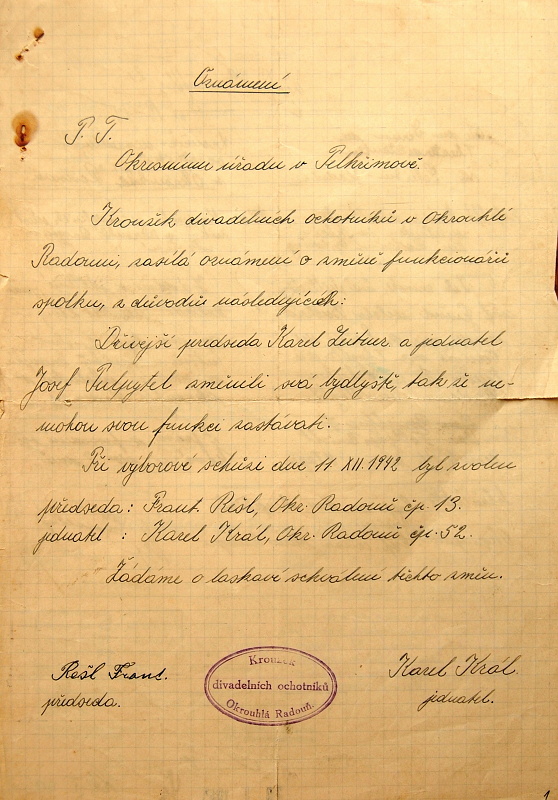 Oznámení
P. T.
Okresnímu úřadu v Pelhřimově.
Kroužek divadelních ochotníků v Okrouhlé
Radouni, zasílá oznámení o změně funkcionářů
spolku, z důvodu následujících:
Dřívejší předseda Karel Zeitner a jednatel
Josef Pulpytel změnili svá bydlyště, tak že ne-
mohou svou funkci zastávati.
Při výborové schůzi dne 11. XII. 1942 byl zvolen
předseda: Frant. Rešl, Okr. Radouň čp. 13.
jednatel : Karel Král, Okr. Radouň čp. 52.
Žádáme o laskavé schválení těchto změn.
Rešl Frant.
předseda.
Kroužek
divadelních ochotníků
Okrouhlá Radouň.
Karel Král
jednatel.
1